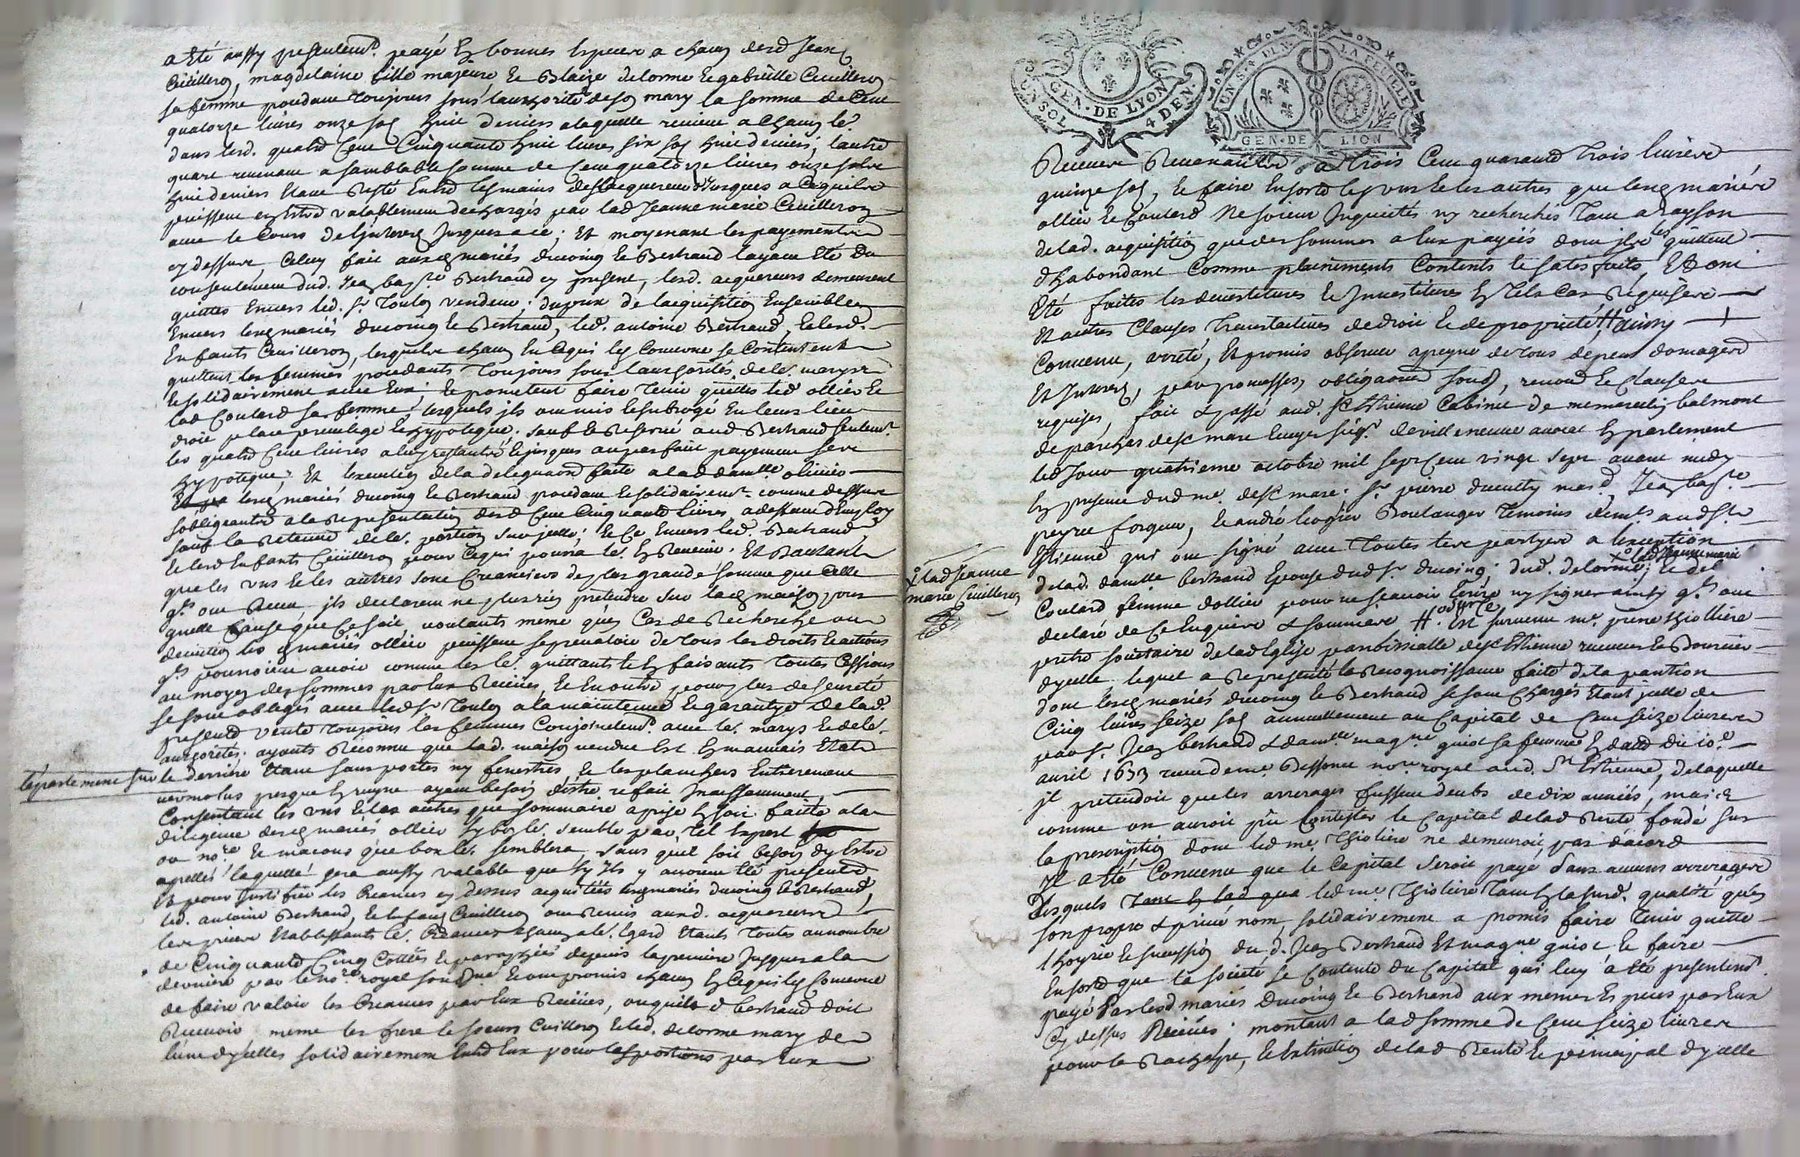 a été aussy presentemt. payé en bonnes especes a chacun desd Jean
Cuilleron, magdelaine fille majeure et Blaize delorme et gabrielle Cuilleron
sa femme procedant toujours sous lauthorité de son mary la somme de Cent
quatorze livres onze sols huit deniers a laquelle revient a chacun le
dans lesd. quatre Cent Cinquante huit livres six sols huit deniers, lautre
quart revenant a semblable somme de Cent quatorze livres onze sols
huit deniers etant resté entre les mains des acquereurs Jusques a Ce quils
puissent en estre valablement dechargés par lad Jeanne marie Cuilleron
avec le Cours de linterest Jusques a ce; Et moyenant les payements
cy dessus Celuy fait auxd mariés ducoing et Bertrand layant été du
consentement dud. Jean bapte Bertrand cy present, lesd. acquereurs demeurent
quittes envers led. sr. Toulon vendeur; du prix de lacquisition Ensemble
Envers lesd mariés ducoing et Bertrand, led. antoine Bertrand, et lesd.
Enfants Cuilleron, lesquels chacun en Ce qui les Concerne se Contentent
quittent les femmes procedants Toujours sous lauthorité de le. marys
et solidairement avec Eux; et promettent faire tenir quittes led ollier et
lad Coulard sa femme, lesquels ils ont mis et subrogé En leurs lieu
droit place privilege et hypoteque, sauf et reservé aud Bertrand seulemt.
les quatre Cent livres a luy restantes et jusques au parfait payement ses
hypoteque; Et Execution de la delegation faite a lad damlle. ollier
lesd mariés ducoing et Bertrand procedant et solidairemt. comme dessus
sobligeants a la representation desd Cent Cinquante livres a deffaut d'Employ
sauf la retenue de le. portion sur jcelle; et Ce Envers led Bertrand
et lesd Enfants Cuilleron pour Ce qui pourra le. en revenir. Et Dautant
que les uns et les autres sont Creanciers de plus grande somme que Celle
qs. ont receu, ils declarent ne plus rien pretendre sur lad maison pour
quelle Cause que Ce soit, voulants meme qu'en Cas de Recherche ou
deviction les mariés ollier puissent se prevaloir de tous les droits et actions
qs. pourroient avoir comme les le. quittants et en faisants toutes Cessions
au moyen des sommes par Eux Receües, et En outre pour plus de seureté
se sont obligés avec led sr Toulon a la maintenue et garantye de lad
presente vente toujours les femmes Conjointemt. avec le. marys et de le.
authorités; ayants Reconnu que lad. maison vendue est en mauvais Etat
lapartement sur le derriere Etant sans portes ny fenestres, et les planchers Entierement
vermolus presque en ruyne ayant besoin destre refait Incessamment
Consentant les uns et les autres que sommaire aprise en soit faitte a la
diligence desd mariés ollier sy bon le. semble par tel Expert
ou nore. et macons que bon le. semblera sans qu'il soit besoin dy Estre
apellés laquelle sera aussy valable que sy ils y avoient eté presents
Et pour Justifier les Creances cy dessus acquittées lesd mariés ducoing et Bertrand,
led. antoine Bertrand, et lesd Cuilleron ont remis auxd. acquereurs
les pieces Etablissants le. Creances chacun a le. Egard Etants toutes au nombre
de Cinquante Cinq Cottées et paraphées depuis la premiere Jusques a la
derniere par le nore. royal soussné. et ont promis chacun en Ce qui les Concerne
de faire valoir les Creances par Eux Receües, ou quil led bertrand doit
Recevoir meme les frere et soeurs Cuilleron et led. delorme mary de
lune dycelles solidairement Entre Eux pour les portions par Eux
UN SOL 4 DEN.
GEN. DE LYON
UN SOL DEN LA FEUILLE
GEN. DE LION
Receues Revenantes a Trois Cent quarante Trois livres
quinze sols, et faire Ensorte les uns et les autres que lesd mariés
ollier et Coulard Ne soient Inquietés ny recherchés Tant a rayson
de lad. acquisition que des sommes a Eux payées dont ils les quittent
d'habondant Comme plainements Contents et satisfaits, Et ont
Eté faites les devestitures et Investitures En tels Cas Requises
Et autres Clauses Translatives de droit et de proprieté # ainsy
Convenu, arreté, Et promis observer a peyne de tous depens domages
Et Interets, par promesses, obligations sousd, renond et Clauses
requises, fait et passé aud. St Etienne Cabinet de me marcellin balmont
de parchas de St marc Ecuyer seigr. de villeneuve avocat en parlement
led Jour quatrieme octobre mil sept Cent vingt sept avant midy
En presence dud me. de St marc; sr. pierre ducully mard, Jean bapte
peyre forgeur, et andré liogier Boulanger Temoins demts. aud St
Etienne qui ont signé avec Toutes les partyes a lexception
de lad. damlle bertrand Epouse dud sr. ducoing; dud. delorme; x lad Jeanne marie et de la
x lad Jeanne
marie Cuilleron
Coulard femme dollier pour ne scavoir Ecrire ny signer ainsy qs. ont
declaré de Ce Enquis & sommés # Et survenu mre. pierre Thiolliere
pretre societaire de lad Eglise parroissialle de St Etienne receveur et Boursier
dycelle lequel a Representé la Recognoissance faite de la pention
dont lesd mariés ducoing et Bertrand se sont Chargés Etant jcelle de
Cinq livres seize sols annuellement au Capital de Cent seize livres
par sr. Jean bertrand & damlle magne. guiot sa femme en datte du 10e.
avril 1653 receu de me. Bessonet nore. royal aud. St Etienne, de laquelle
jl pretendoit que les arrerages fussent deubs de dix années, mais
comme on auroit pu Contester le Capital de lad Rente fondé sur
la prescription dont led me, Thioliere ne demeuroit pas dacord
Il a Eté Convenu que le Capital seroit payé sans aucuns arrerages
Desquels led me. Thioliere Tant En lasusd. qualité qu'En
son propre & privé nom, solidairement a promis faire tenir quitte
l'hoyrie et succession du d. Jean Bertrand Et magne guiot et faire
Ensorte que la societé se Contente du Capital qui luy a eté presentemt.
payé Par lesd mariés Ducoing et Bertrand aux memes Especes par Eux
Cy dessus Receües montant a lad somme de Cent seize livres
pour le Rachapt, et Extinction de lad Rente et principal dycelle